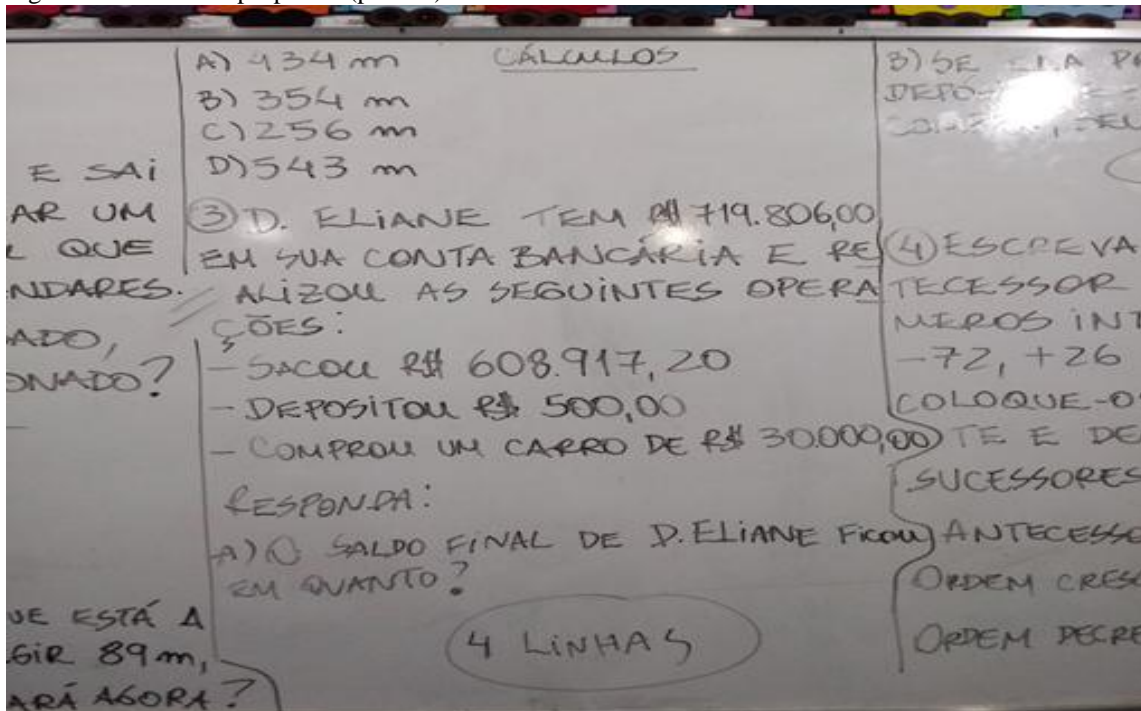 E SAI
AR UM
L QUE
NDARES.
ADO,
ONADO?
UE ESTÁ A
GIR 89 m,
ARÁ AGORA?
A) 434 m
B) 354 m
C) 256 m
D) 543 m
CÁLCULOS
③ D. ELIANE TEM R$ 719.806,00
EM SUA CONTA BANCÁRIA E RE
ALIZOU AS SEGUINTES OPERA
ÇÕES:
- SACOU R$ 608.917,20
- DEPOSITOU R$ 500,00
- COMPROU UM CARRO DE R$ 30.000,00
RESPONDA:
A) O SALDO FINAL DE D. ELIANE FICOU
EM QUANTO?
4 LINHAS
B) SE ELA
④ ESCREVA
TECESSOR
MEROS INT
-72, +26
COLOQUE-O
TE E DE
SUCESSORES
ANTECESSO
ORDEM CRES
ORDEM DECRE